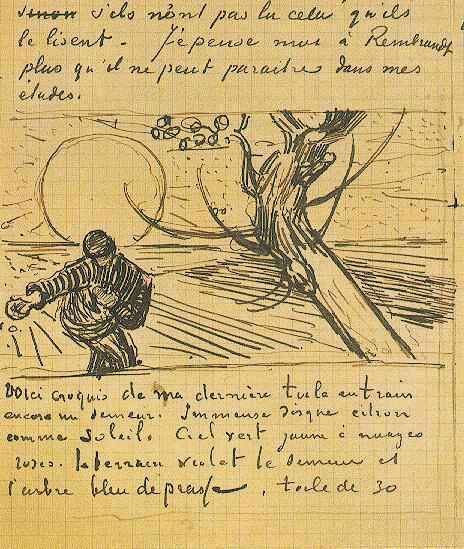 Sinon s'ils n'ont pas lu cela qu'ils
le lisent. Je pense moi à Rembrandt
plus qu'il ne peut paraitre dans mes
études.
Voici croquis de ma dernière toile en train
encore un semeur. Immense disque citron
comme soleil. Ciel vert jaune à nuages
roses. le terrain violet le semeur et
l'arbre bleu de prusse. toile de 30